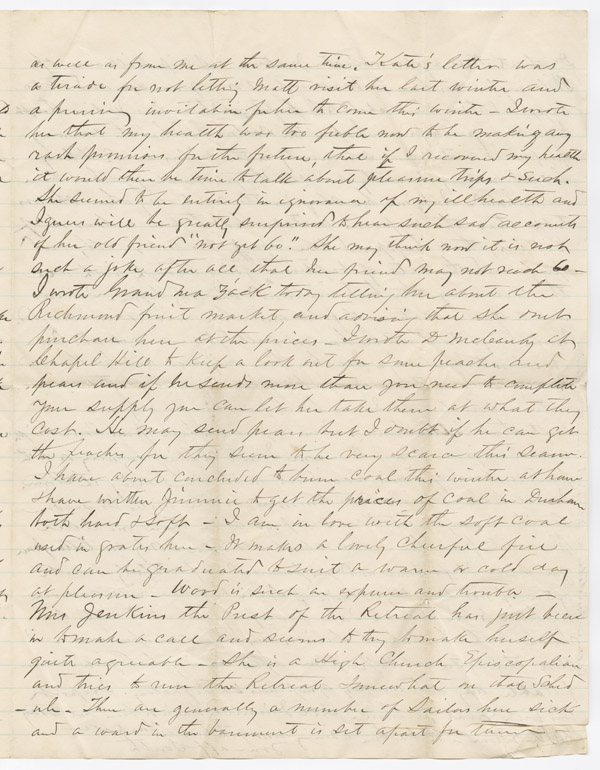 as well as from me at the same time. Kate's letter was
a tirade for not letting Matt visit her last winter and
a pressing invitation for her to come this winter - I wrote
her that my health was too feeble now to be making any
rash promises for the future, that if I recovered my health
it would then be time to talk about pleasure trips & such.
She seemed to be entirely in ignorance of my ill health and
I guess will be greatly surprised to hear such sad accounts
of her old friend "not yet 60". She may think now it is not
such a joke after all that her friend may not reach 60 -
I wrote Grand Ma Zack today telling her about the
Richmond fruit market, and advising that she don't
purchase here at the prices - I wrote D McCauley at
Chapel Hill to keep a look out for some peaches and
pears and if he sends more than you need to complete
your supply you can let her take them at what they
cost. He may send pears but I doubt if he can get
the peaches for they seem to be very scarce this season.
I have about concluded to burn coal this winter at home
& have written Jimmie to get the prices of coal in Durham
both hard & soft - I am in love with the soft coal
used in grates here - It makes a lovely cheerful fire
and can be graduated to suit a warm or cold day
at pleasure - Wood is such an expense and trouble -
Mrs Jenkins the Prest of the Retreat has just been
in to make a call and seems to try to make herself
quite agreeable - She is a High Church Episcopalian
and tries to run the Retreat somewhat on that Sched
-ule - There are generally a number of Sailors here sick
and a ward in the basement is set apart for them